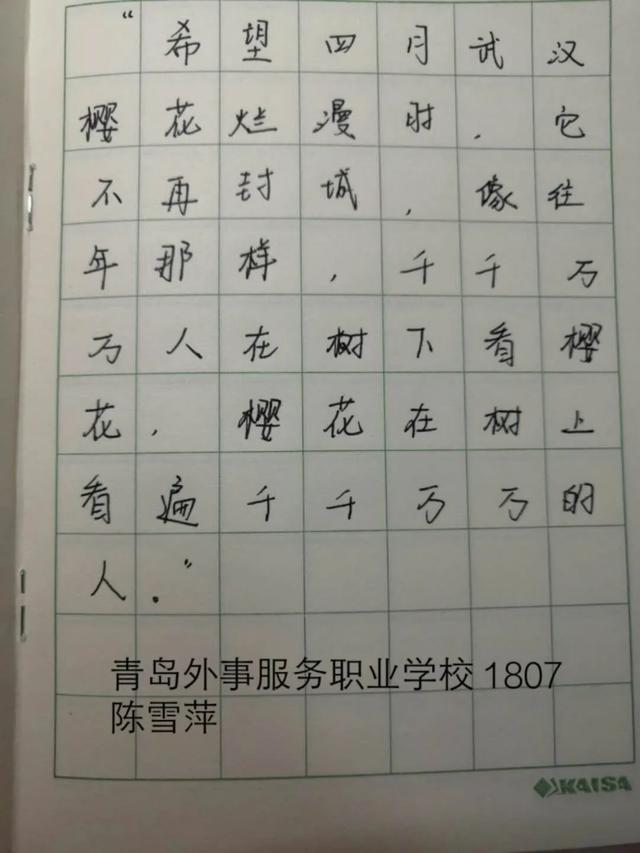 “希望四月武汉
樱花烂漫时，它
不再封城，像往
年那样，千千万
万人在树下看樱
花，樱花在树上
看遍千千万万的
人。”
青岛外事服务职业学校 1807
陈雪萍
KAISA